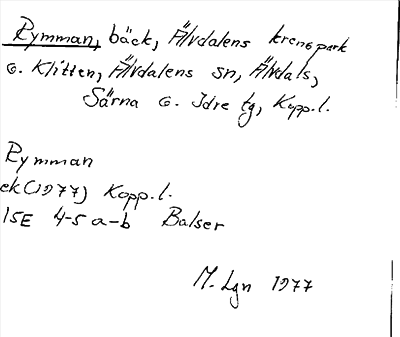 Rymman, bäck, Älvdalens kronopark
o. Klitten, Älvdalens sn, Älvdals,
Särna o. Idre tg, Kopp.l.
Rymman
ek (1977) Kopp.l.
15E 4-5 a-b Balser
M. Lgn 1977